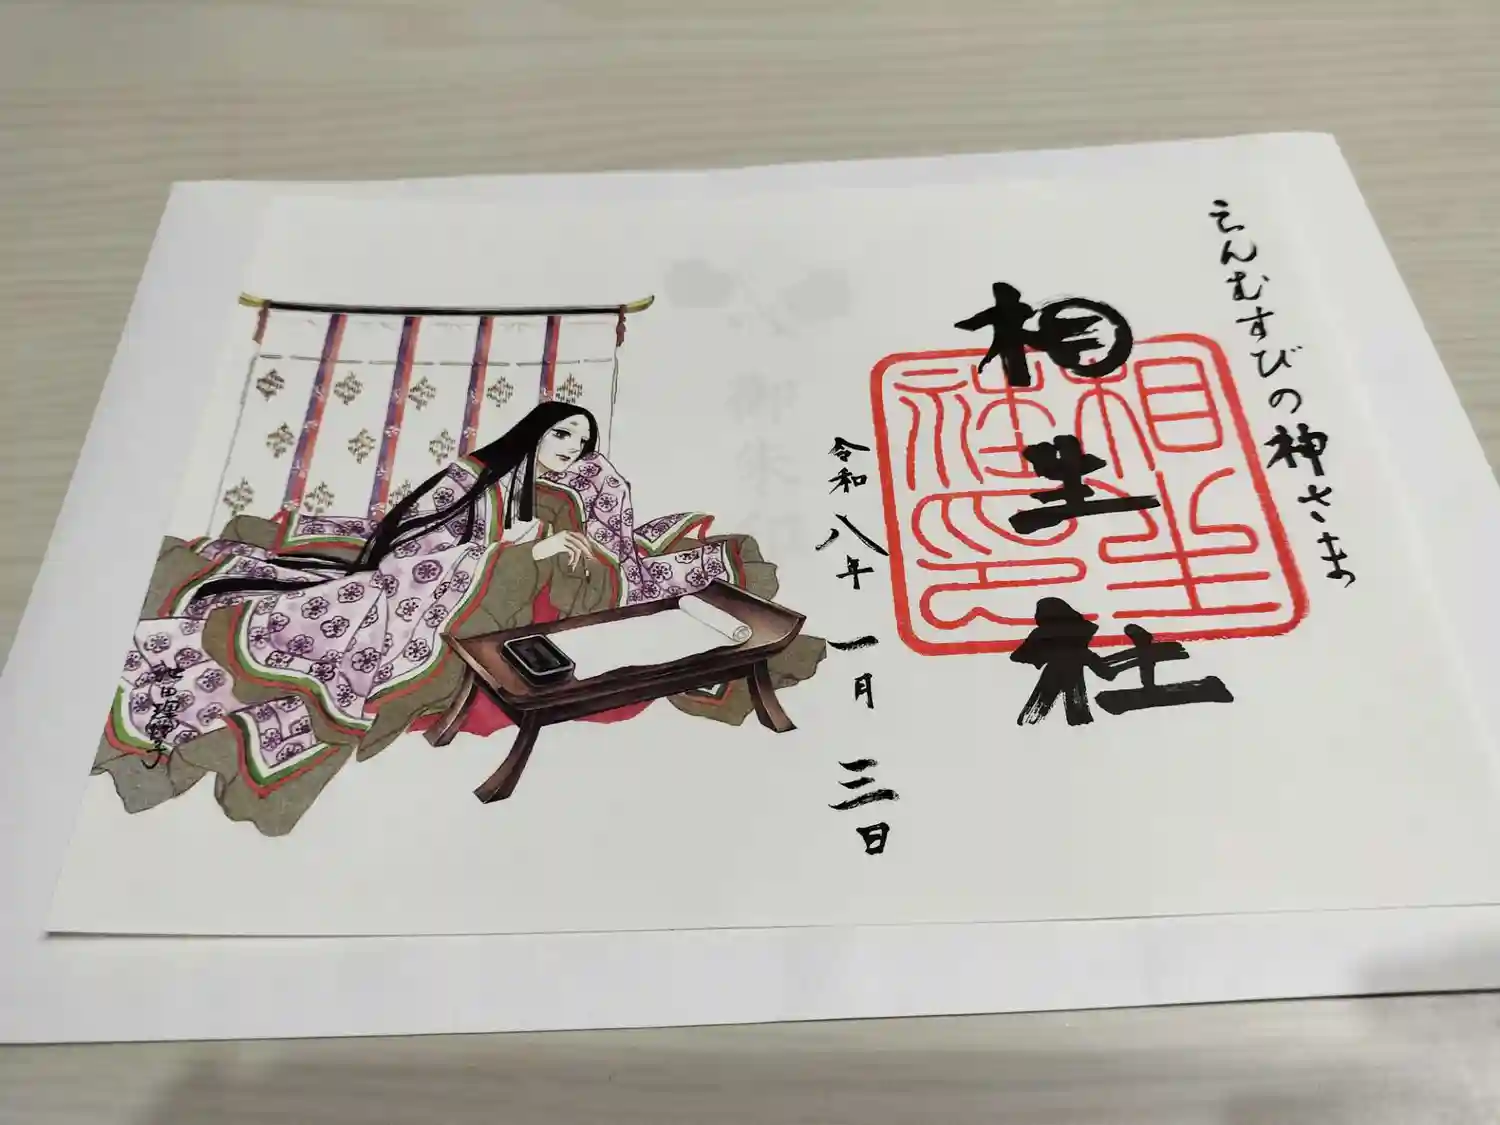 えんむすびの神さま
相生社
相生社之印
令和八年 一月 三日
池田理代子
御朱印